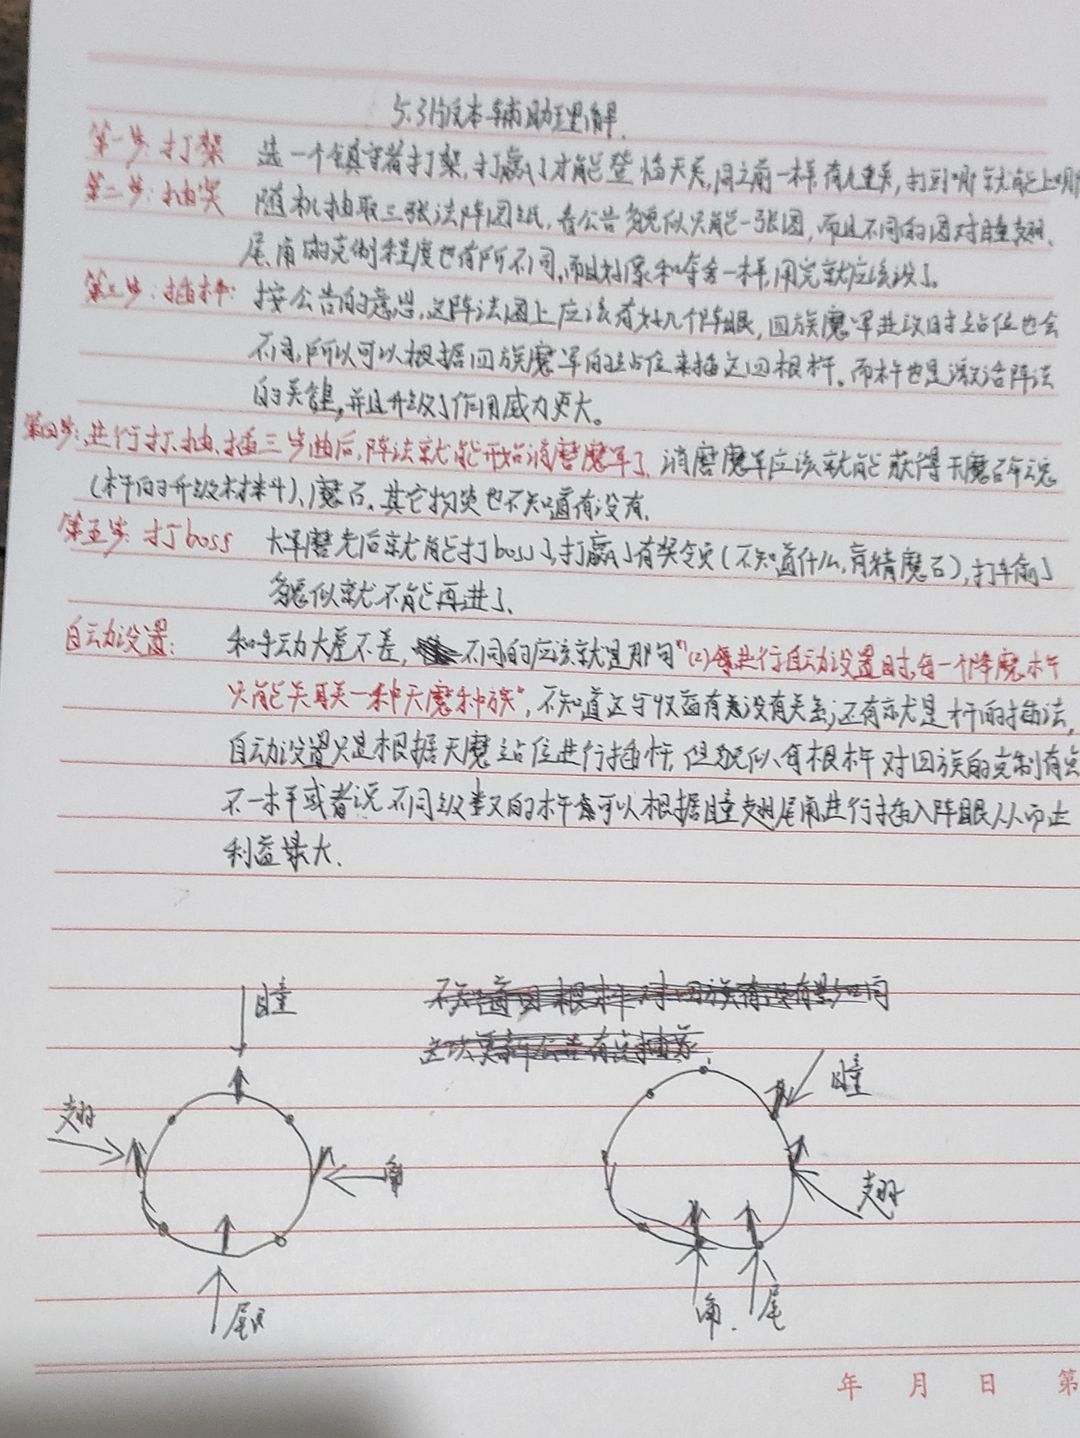 5.31版本辅助理解.
第一步:打架 选一个镇守者打架,打赢了才能登临天关,同之前一样有九重关,打到哪就能上哪
第二步:抽奖 随机抽取三张法阵图纸,看公告貌似只能一张图,而且不同的图对瞳翅、
尾、角的克制程度也有所不同,而且好像和夺舍一样,用完就应该没了。
第三步:插杵: 按公告的意思,这阵法图上应该有好几个阵眼,四族魔军进攻时站位也会
不同,所以可以根据四族魔军的站位来插这四根杵。而杵也是激活阵法
的关键,并且升级了作用威力更大。
第四步:进行打、抽、插三步曲后,阵法就能开始消磨魔军了,消磨魔军应该就能获得天魔碎魂
(杵的升级材料)、魔石。其它物资也不知道有没有.
第五步:打boss 大军磨光后就能打boss了,打赢了有奖领(不知道什么,有精魔石),打输了
貌似就不能再进了、
自动设置: 和手动大差不差,不同的应该就是那句"(2)每进行自动设置时,每一个降魔杵
只能关联一种天魔种族",不知道这与收益有没有关系;还有就是杵的插法,
自动设置只是根据天魔站位进行插杵,但貌似每根杵对四族的克制有点
不一样或者说不同级数的杵可以根据瞳翅尾角进行插入阵眼从而让
利益最大.
不知道四根杵对四族有没有
这次更新公告有点抽象
瞳
瞳
翅
角
翅
尾
角.
尾
年 月 日 第